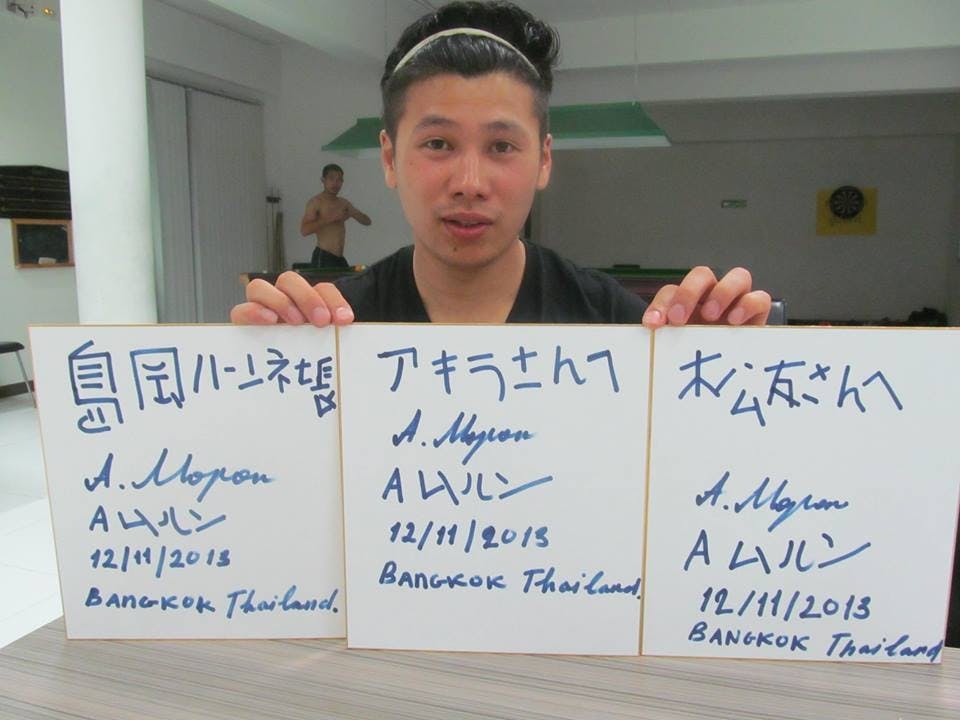 A. Мөрөн
A ムルン
12/11/2013
BANGKOK Thailand.
アキラさんへ
A. Мөрөн
A ムルン
12/11/2013
BANGKOK Thailand.
松友さんへ
A. Мөрөн
A ムルン
12/11/2013
BANGKOK Thailand